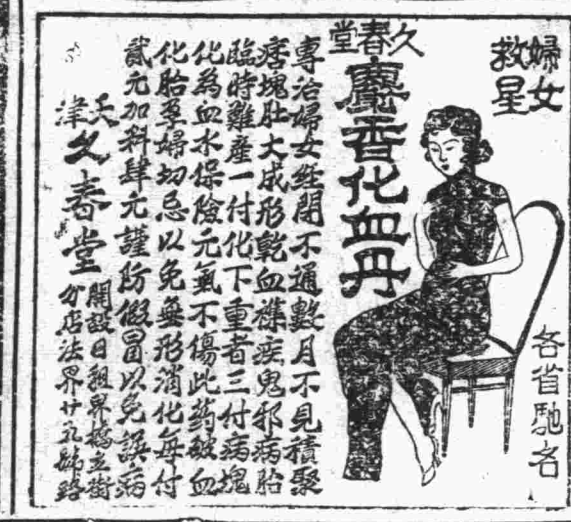 婦女
救星
各省馳名
久春堂
麝香化血丹
專治婦女經閉不通數月不見積聚
痞塊肚大成形乾血襍疾鬼邪病胎
臨時難產一付化下重者三付病塊
化為血水保險元氣不傷此药破血
化胎孕婦切忌以免無形消化每付
貳元加料肆元謹防假冒以免誤病
天津久春堂
開設日租界橋立街
分店法界廿五號路